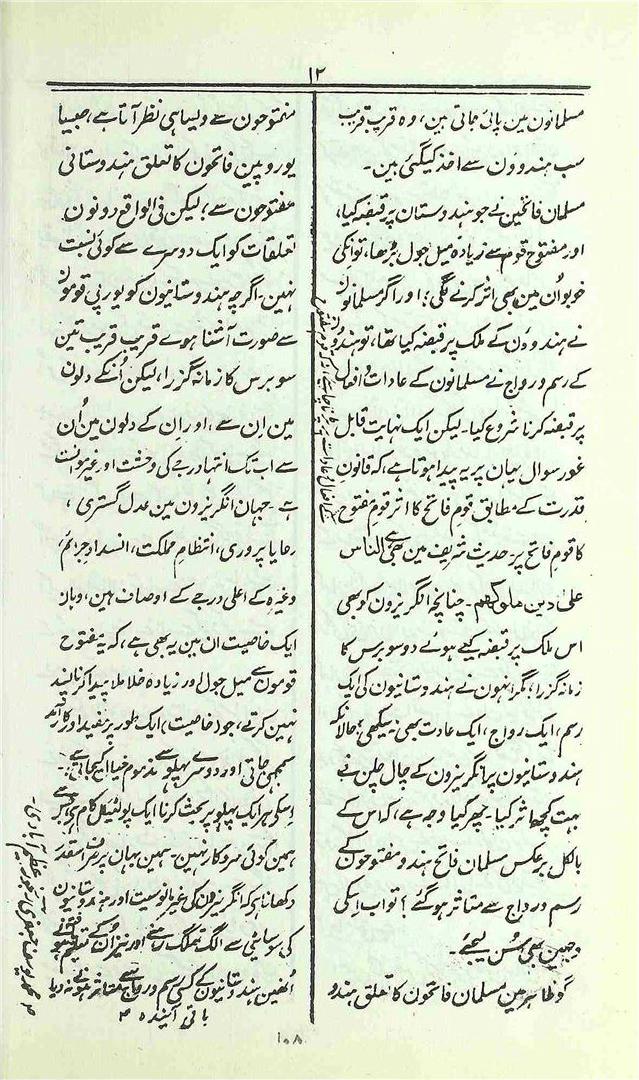 ۱۲
مسلمانون مین پائی جاتی ہین، وہ قریب قریب
سب ہندوؤن سے اخذ کیگئی ہین۔
مسلمان فاتحین نے جو ہندوستان پر قبضہ کیا،
اور مفتوح قوم سے زیادہ میل جول بڑھا، تو انکی
خوبو اُن مین بھی اثر کرنے لگی؛ اور اگر مسلمانون
نے ہندوؤن کے ملک پر قبضہ کیا تھا، تو ہندوؤن
کے رسم و رواج نے مسلمانون کے عادات و افعال
پر قبضہ کرنا شروع کیا۔ لیکن ایک نہایت قابل
غور سوال بیان پر یہ پیدا ہوتا ہے، کہ قانون
قدرت کے مطابق قوم فاتح کا اثر قوم مفتوح
کا قوم فاتح پر۔ حدیث شریف مین بھی ہے الناس
علیٰ دین ملوکھم۔ چنانچہ انگریزون کو بھی
اس ملک پر قبضہ کیے ہوئے دو سو برس کا
زمانہ گزرا؛ مگر انہون نے ہندوستانیون کی ایک
رسم، ایک رواج، ایک عادت بھی نہ سیکھی؛ حالانکہ
ہندوستانیون پر انگریزون کے چال چلن نے
بہت کچھ اثر کیا۔ پھر کیا وجہ ہے، کہ اس کے
بالکل برعکس مسلمان فاتح ہندو مفتوحون کے
رسم و رواج سے متاثر ہو گئے؟ تو اب اسکی
وجہین بھی سُن لیجئے۔
گو ظاہر مین مسلمان فاتحون کا تعلق ہندو
مفتوحون سے ویسا ہی نظر آتا ہے، جیسا
یوروپین فاتحون کا تعلق ہندوستانی
مفتوحون سے؛ لیکن فی الواقع دونون
تعلقات کو ایک دوسرے سے کوئی نسبت
نہین۔ اگرچہ ہندوستانیون کو یورپی قومون
سے صورت آشنا ہوے قریب قریب تین
سو برس کا زمانہ گزرا، لیکن اُنکے دلون
مین اِن سے، اور اِن کے دلون مین اُن
سے اب تک انتہا درجے کی وحشت اور غیریت
ہے۔ جہان انگریزون مین عدل گستری،
رعایا پروری، انتظام مملکت، انسداد جرائم،
وغیرہ کے اعلیٰ درجے کے اوصاف ہین، وہان
ایک خاصیت ان مین یہ بھی ہے، کہ یہ مفتوح
قومون سے میل جول اور زیادہ خلا ملا پیدا کرنا پسند
نہین کرتے، جو (خاصیت) ایک طور پر مفید اور کارآمد
سمجھی جاتی اور دوسرے پہلو سے مذموم خیال کیجاتی ہے۔
اِسکی ہر ایک پہلو پر بحث کرنا ایک پولٹیکل کام ہے جس سے
ہمین کوئی سروکار نہین۔ ہمین یہان پر صرف اسقدر
دکھانا ہے کہ انگریزون کی غیر مانوسیت اور ہندوستانیون
کی سوسائٹی سے الگ تھلگ رہنے اور نیز اُن کے
اُنھین ہندوستانیون کے کسی رسم و رواج سے متاثر ہونے نہ دیا
باقی آئندہ
۱۰۸